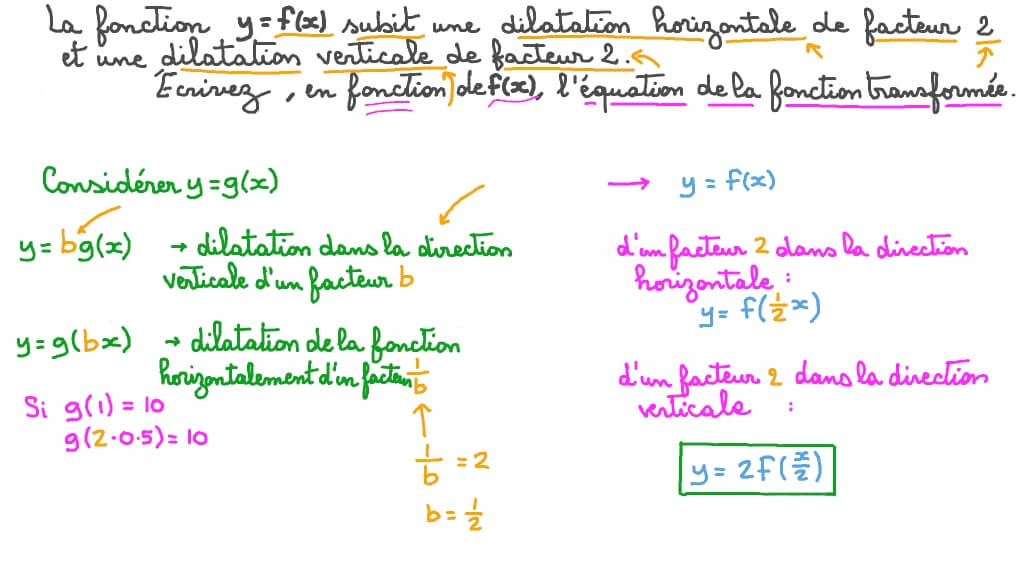 La fonction y = f(x) subit une dilatation horizontale de facteur 2
et une dilatation verticale de facteur 2.
Écrivez, en fonction de f(x), l'équation de la fonction transformée.
Considérer y = g(x)
y = bg(x) → dilatation dans la direction
verticale d'un facteur b
y = g(bx) → dilatation de la fonction
horizontalement d'un facteur 1/b
Si g(1) = 10
g(2·0.5) = 10
1/b = 2
b = 1/2
→ y = f(x)
d'un facteur 2 dans la direction
horizontale :
y = f(1/2 x)
d'un facteur 2 dans la direction
verticale :
y = 2f(x/2)